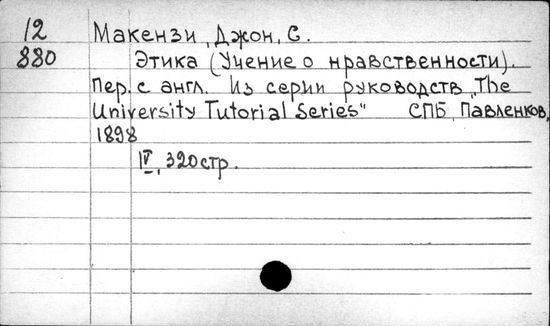 12 Макензи, Джон, С.
880 Этика (Учение о нравственности).
Пер. с англ. Из серии руководств „The
University Tutorial Series" СПБ, Павленков,
1898
IV, 320 стр.